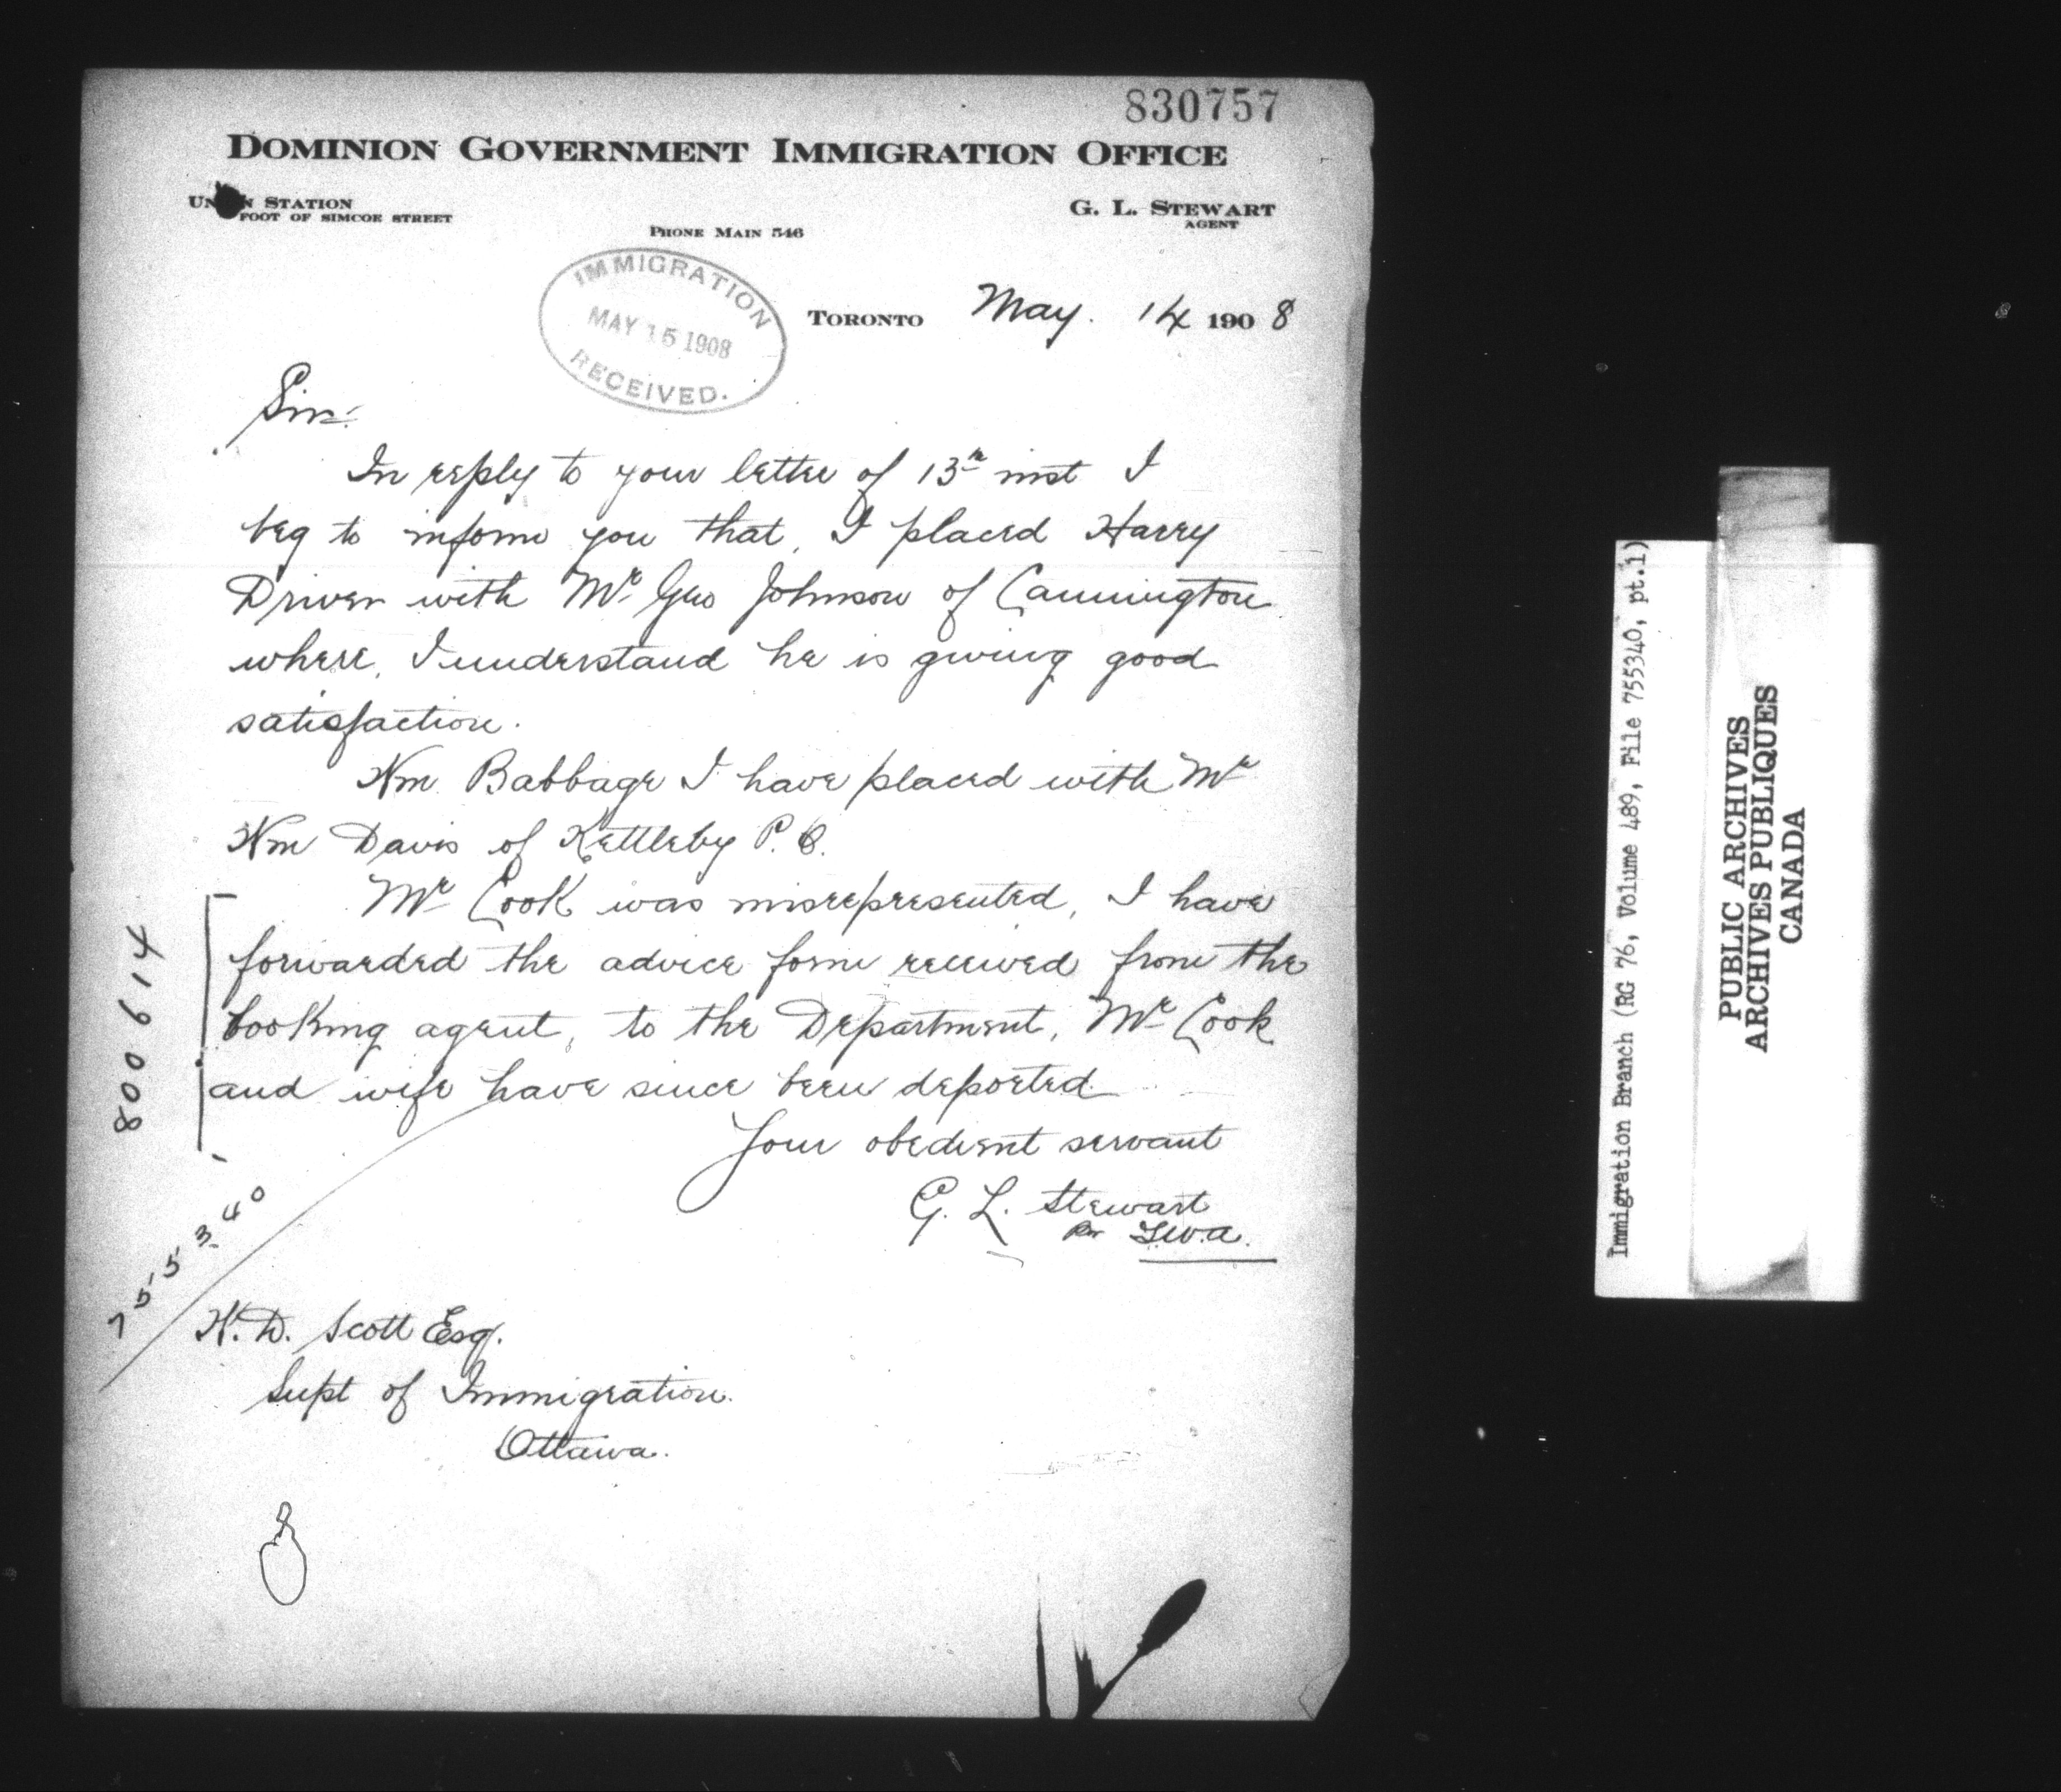 830757
DOMINION GOVERNMENT IMMIGRATION OFFICE
UNION STATION
FOOT OF SIMCOE STREET
G. L. STEWART
AGENT
PHONE MAIN 546
IMMIGRATION
MAY 15 1908
RECEIVED.
TORONTO May. 14 1908
Sir:
In reply to your letter of 13th inst I
beg to inform you that, I placed Harry
Driver with Mr Geo Johnson of Cannington
where, I understand he is giving good
satisfaction.
Wm. Babbage I have placed with Mr
Wm Davis of Kettleby P. O.
Mr Cook was misrepresented, I have
forwarded the advice form received from the
booking agent, to the Department, Mr Cook
and wife have since been deported
Your obedient servant
G. L. Stewart
Per
W. D. Scott Esq.
Supt of Immigration.
Ottawa.
800614
755340
Immigration Branch (RG 76, Volume 489, File 755340, pt.1)
PUBLIC ARCHIVES
ARCHIVES PUBLIQUES
CANADA